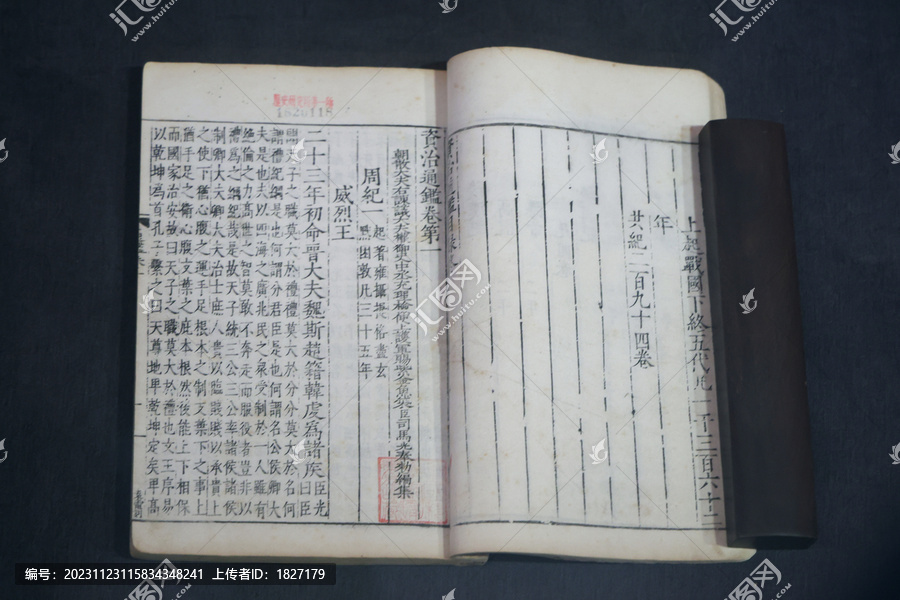 上起戰國下終五代凡一千三百六十二
年
共紀二百九十四卷
資治通鑑卷第一
朝散大夫右諫議大夫權御史中丞充理檢使上護軍賜紫金魚袋臣司馬光奉勑編集
周紀一
起著雍攝提格盡玄
黓困敦凡三十五年
威烈王
二十三年初命晉大夫魏斯趙籍韓虔爲諸侯
臣光曰臣
聞天子之職莫大於禮禮莫大於分分莫大於名何
謂禮紀綱是也何謂分君臣是也何謂名公侯卿大
夫是也夫以四海之廣兆民之衆受制於一人雖有
絕倫之力高世之智莫敢不奔走而服役者豈非以
禮爲之綱紀哉是故天子統三公三公率諸侯諸侯
制卿大夫卿大夫治士庶人貴以臨賤賤以承貴上
之使下猶心腹之運手足根本之制支葉下之事上
猶手足之衛心腹支葉之庇本根然後能上下相保
而國家治安故曰天子之職莫大於禮也文王序易
以乾坤爲首孔子繫之曰天尊地卑乾坤定矣卑高
汇图网
huitu.com
编号：20231123115834348241 上传者ID：1827179